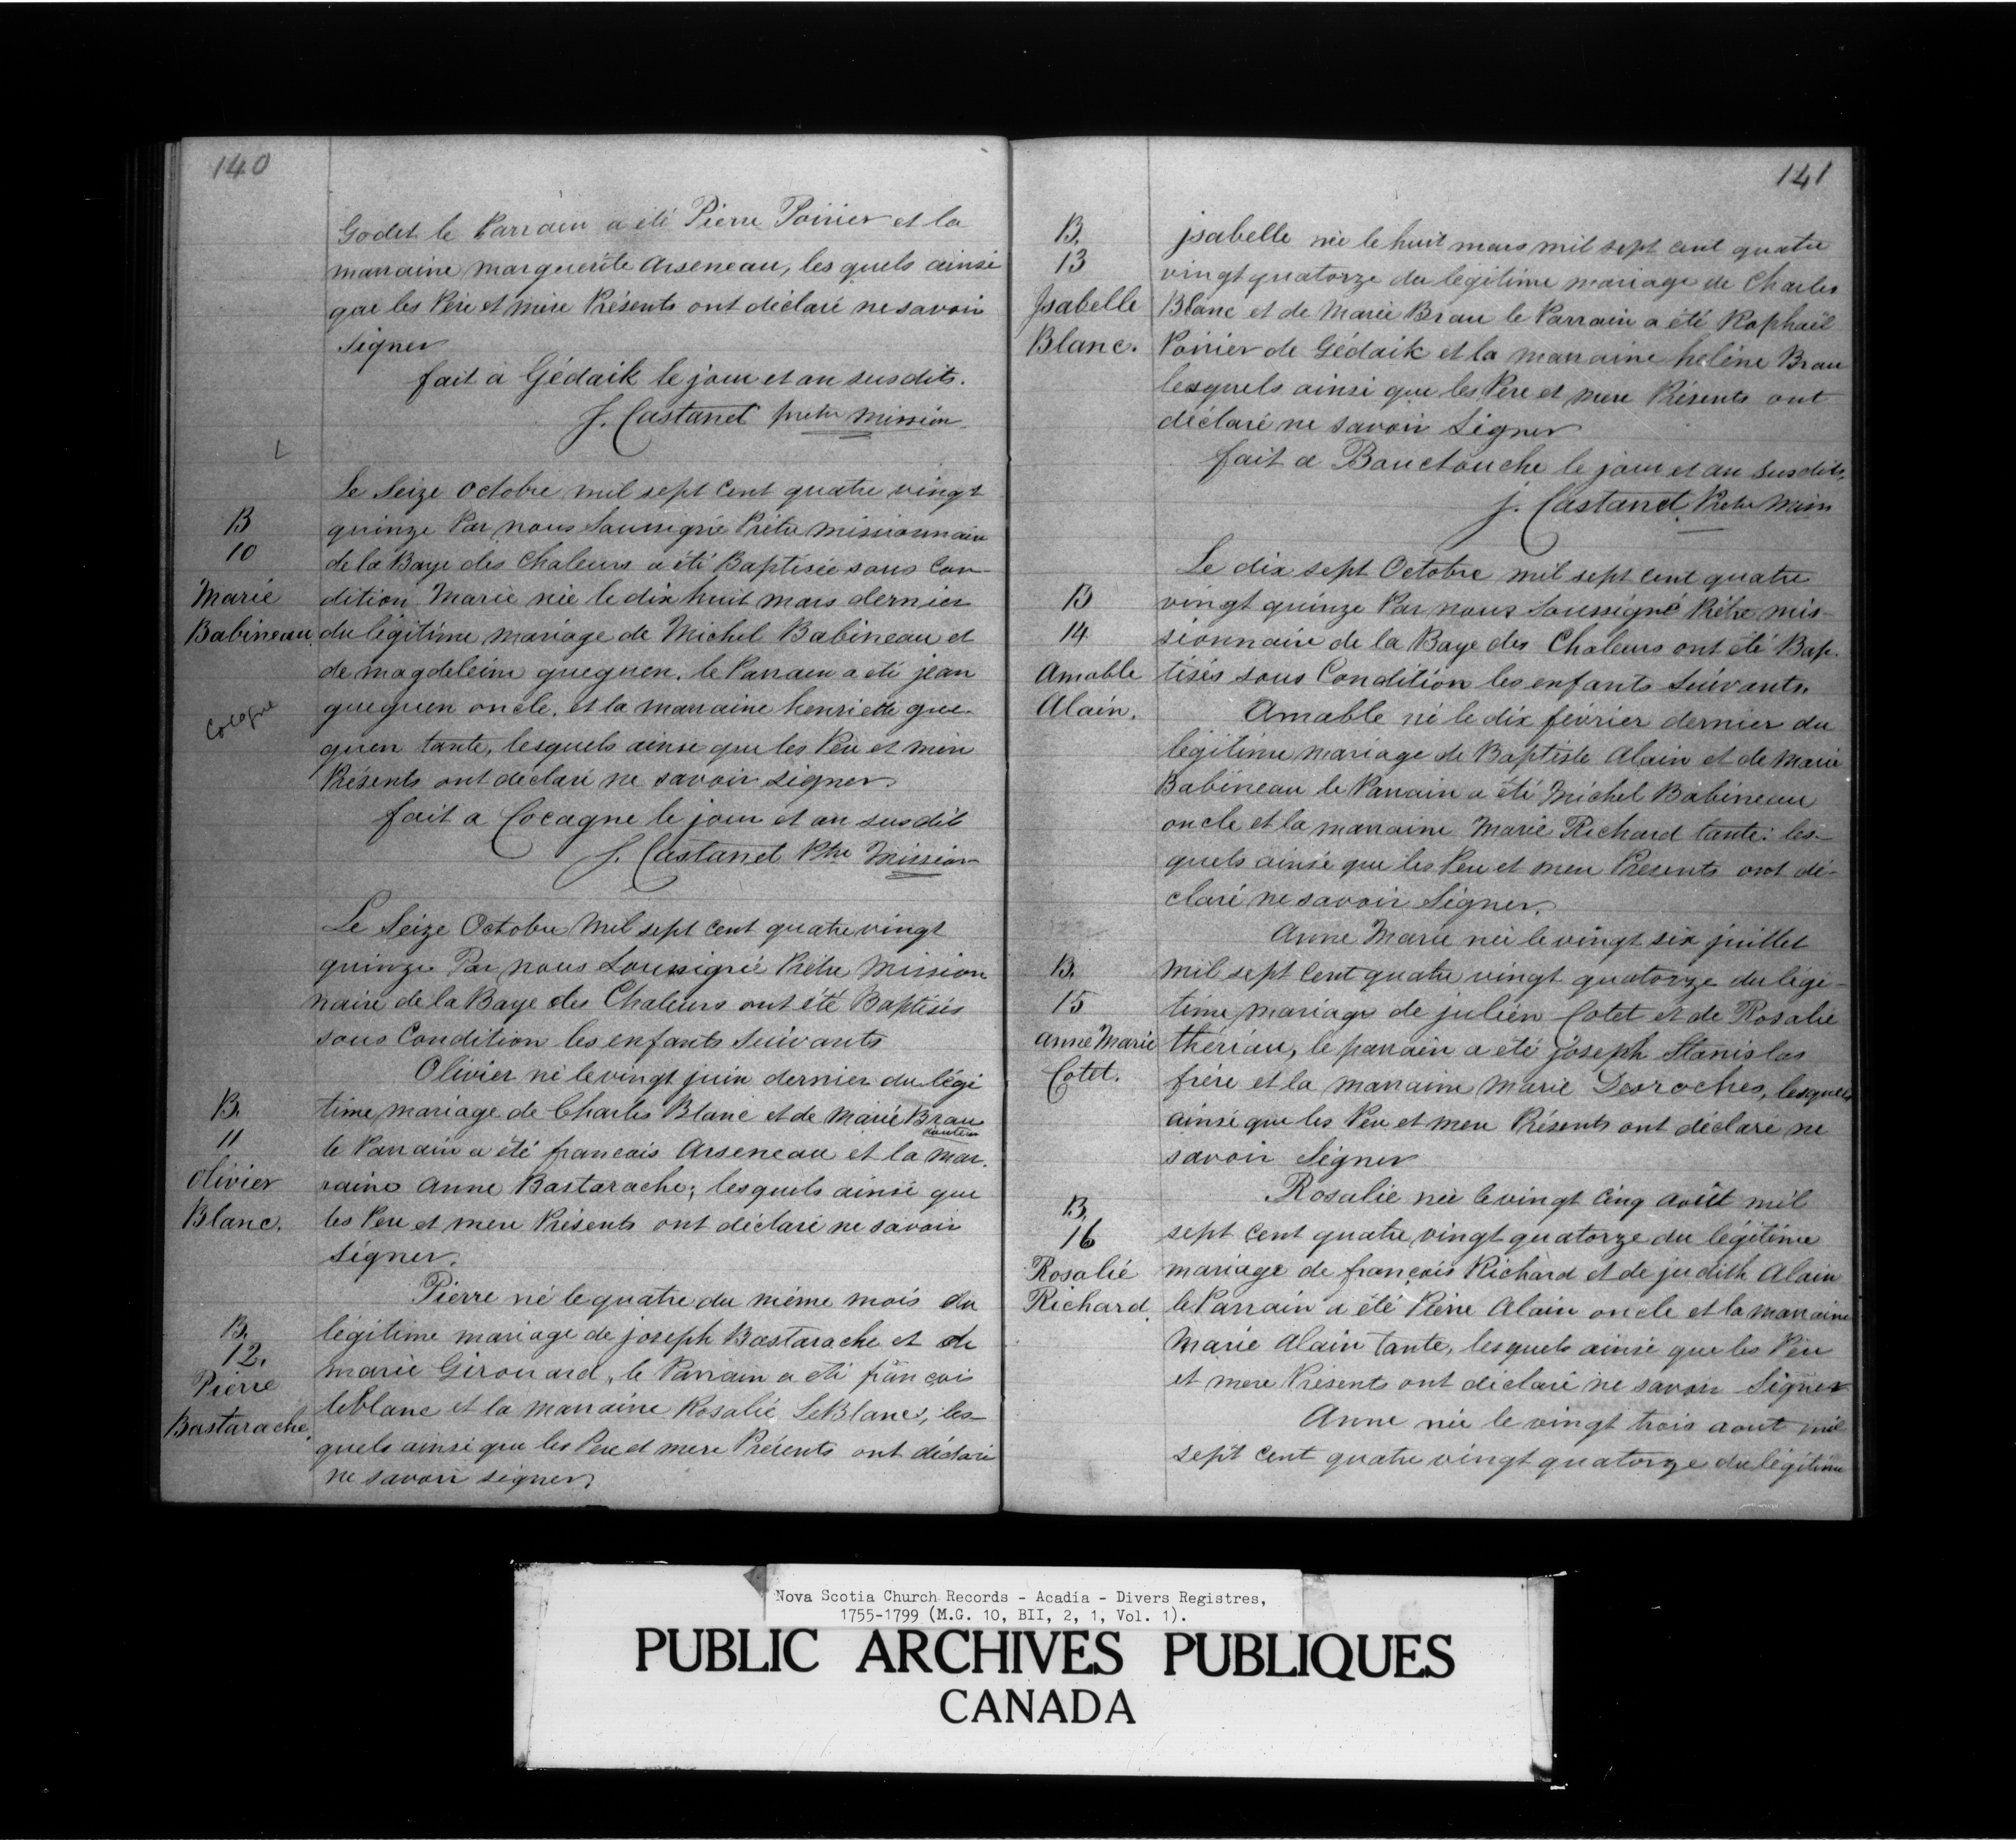 140
Godet le Parrain a été Pierre Poirier et la
marraine marguerite Arseneau, les quels ainsi
que les Père et mère Présents ont déclaré ne savoir
signer
fait à Gédaik le jour et an susdits.
J. Castanet pretre mission.
Le Seize Octobre mil sept cent quatre vingt
B
10
Marie
Babineau
Cocagne
quinze Par nous Soussigné Prêtre missionnaire
de la Baye des Chaleurs a été Baptisée sous Con-
dition Marie née le dix huit mars dernier
du légitime mariage de Michel Babineau et
de magdeleine gueguen. le Parrain a été jean
gueguen oncle. et la marraine henriette gue-
guen tante, lesquels ainsi que les Père et mère
Présents ont déclaré ne savoir signer
fait a Cocagne le jour et an susdit
J. Castanet Ptre Mission
Le Seize Octobre Mil sept cent quatre vingt
quinze Par nous Soussigné Prêtre Mission
naire de la Baye des Chaleurs ont été Baptisés
sous Condition les enfants Suivants
Olivier né le vingt juin dernier du légi
B.
11
Olivier
Blanc.
time mariage de Charles Blanc et de Marie Brau
le Parrain a été francois Arseneau et la mar.
raine Anne Bastarache; lesquels ainsi que
les Pere et mere Présents ont déclaré ne savoir
signer.
Pierre né le quatre du même mois du
B.
12.
Pierre
Bastarache.
légitime mariage de joseph Bastarache et de
marie Girouard, le Parrain a été françois
leblanc et la marraine Rosalie LeBlanc, les-
quels ainsi que les Pere et mere Présents ont déclaré
ne savoir signer.
141
B.
13
Jsabelle
Blanc.
jsabelle née le huit mars mil sept cent quatre
vingt quatorze du légitime mariage de Charles
Blanc et de Marie Brau le Parrain a été Raphaël
Poirier de Gédaik et la marraine helène Brau
lesquels ainsi que les Pere et mere Présents ont
déclaré ne savoir Signer
fait a Bouctouche le jour et an susdits,
J. Castanet Pretre Miss
Le dix sept Octobre mil sept cent quatre
B
14
Amable
Alain.
vingt quinze Par nous Soussigné Prêtre mis-
sionnaire de la Baye des Chaleurs ont été Bap-
tisés sous Condition les enfants Suivants.
Amable né le dix février dernier du
légitime mariage de Baptiste Alain et de Marie
Babineau le Parrain a été Michel Babineau
oncle et la marraine Marie Richard tante: les-
quels ainsi que les Pere et mere Présents ont dé-
claré ne savoir Signer.
Anne Marie née le vingt six juillet
B.
15
Anne Marie
Cotet.
mil sept cent quatre vingt quatorze du légi-
time mariage de julien Cotet et de Rosalie
thériau, le parrain a été joseph Stanislas
frère et la marraine Marie Desroches, lesquels
ainsi que les Pere et mere Présents ont déclaré ne
savoir Signer
Rosalie née le vingt Cinq Août mil
B.
16
Rosalie
Richard
sept cent quatre vingt quatorze du légitime
mariage de françois Richard et de judith Alain
le Parrain a été Pierre Alain oncle et la marraine
Marie Alain tante, lesquels ainsi que les Père
et mere Présents ont déclaré ne savoir Signer
Anne née le vingt trois aout mil
sept cent quatre vingt quatorze du légitime
Nova Scotia Church Records - Acadia - Divers Registres,
1755-1799 (M.G. 10, BII, 2, 1, Vol. 1).
PUBLIC ARCHIVES PUBLIQUES
CANADA